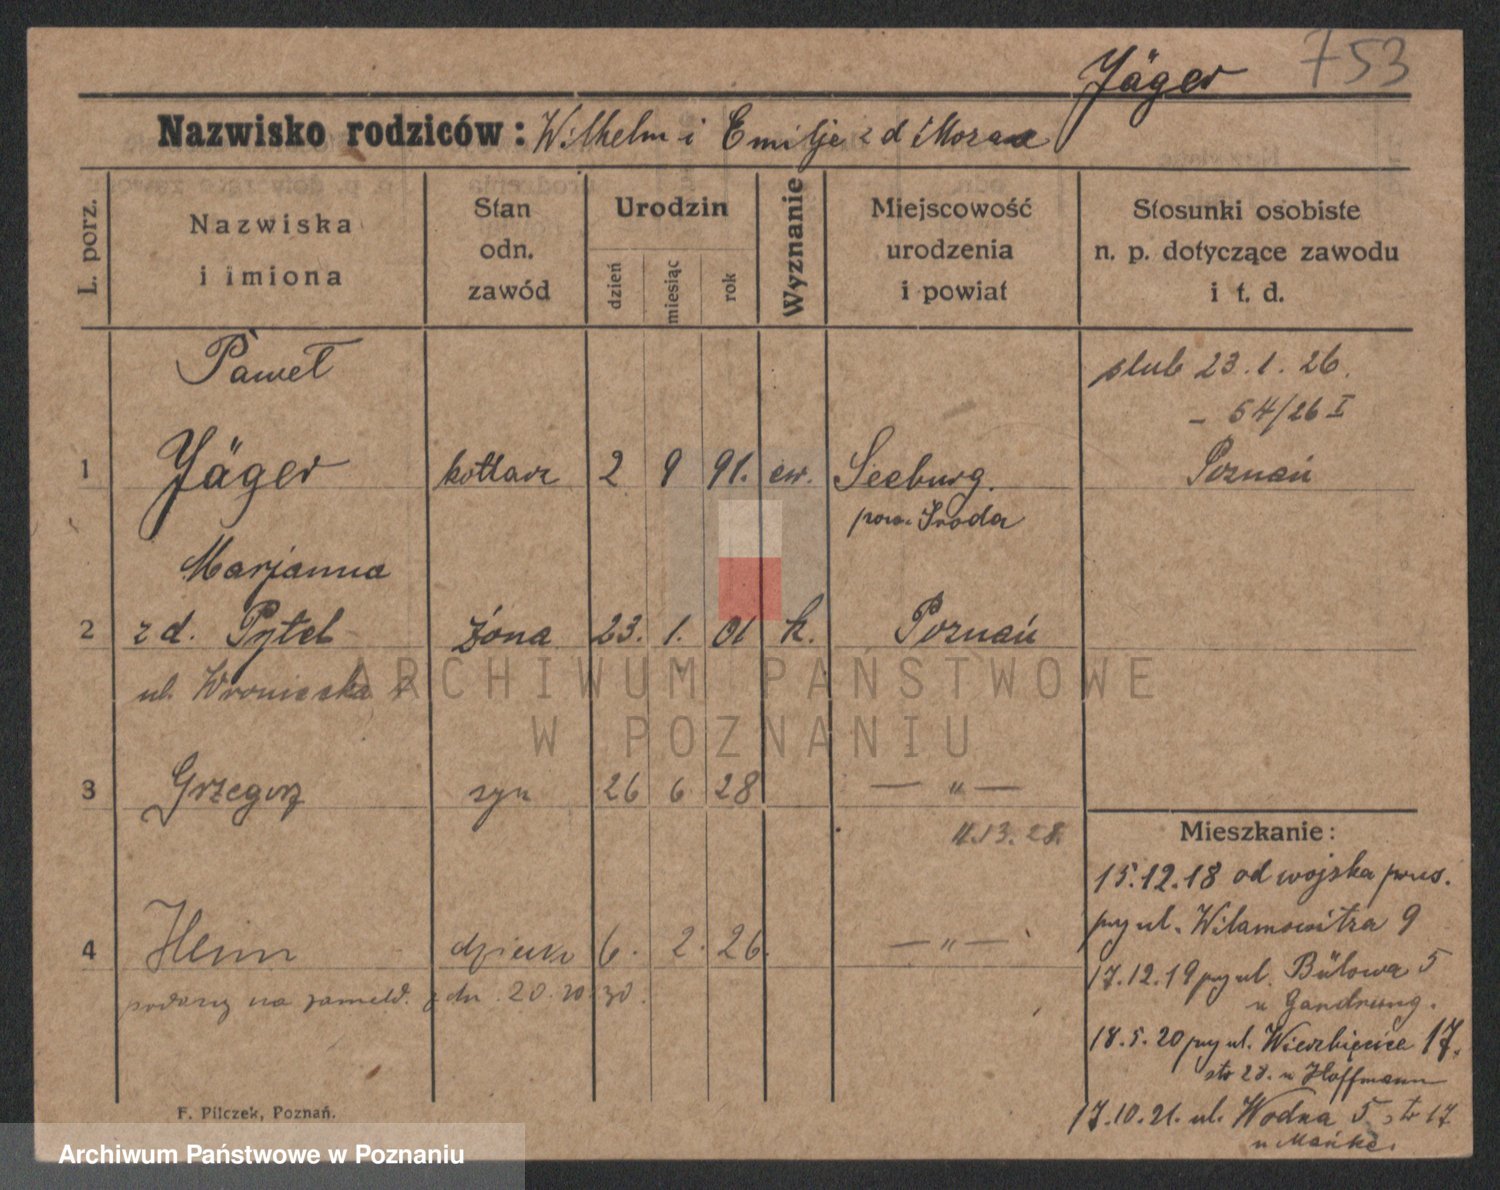 753
Jäger
Nazwisko rodziców: Wilhelm i Emilje z d
L. porz.
Nazwiska i imiona
Stan odn. zawód
Urodzin
dzień
miesiąc
rok
Wyznanie
Miejscowość urodzenia i powiat
Stosunki osobiste n. p. dotyczące zawodu i t. d.
Paweł
ślub 23.1.26.
- 54/26 I
1 Jäger kotlarz 2 9 91. ew. Seeburg. Poznań
pow. Środa
Marjanna
2 z d. Pytel żona 23. 1. 01 k. Poznań
ul. Wroniecka
3 Grzegorz syn 26 6 28 — " —
28.
Mieszkanie:
15.12.18 od wojska prus.
przy ul. Wilamowitza 9
4 Heim dziecko 6. 2. 26. — " —
17.12.19 przy ul. Bülowa 5
u
podany na zameld. z dn. 20.10.30.
18.5.20 przy ul. Wierzbięcice 17.
u Hoffmann
17.10.21. ul. Wodna 5, tr 17
u
F. Pilczek, Poznań.
ARCHIWUM PAŃSTWOWE
W POZNANIU
Archiwum Państwowe w Poznaniu